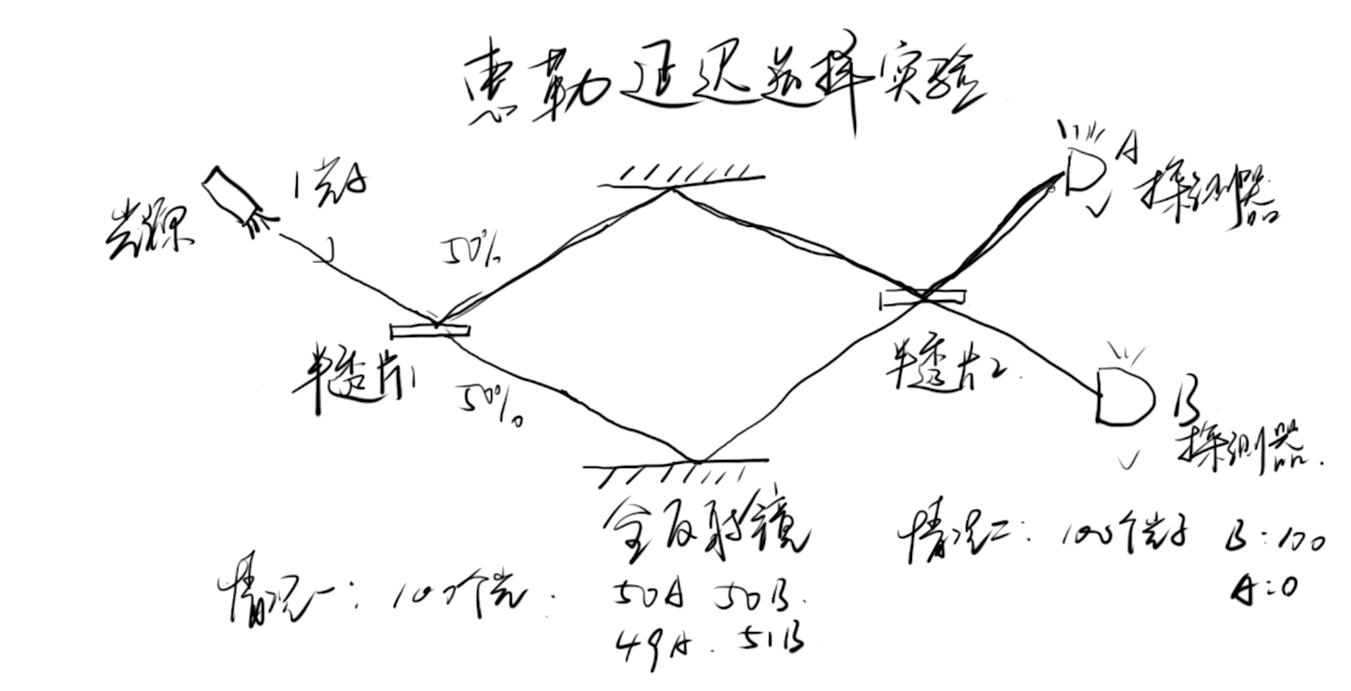 惠勒延迟选择实验
光源
1光子
50%
50%
半透片1
半透片2
A
探测器
B
探测器
全反射镜
情况一: 100个光子
50A 50B
49A 51B
情况二: 100个光子 B:100
A:0